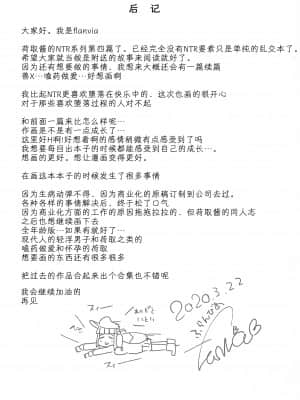 后 记
大家好。我是flanvia
荷取酱的NTR系列第四篇了。已经完全没有NTR要素只是单纯的乱交本了。
希望大家就当做是附送的故事来阅读就好了。
因为还有想要做的事情，我想来大概还会有一篇续篇
兽X…嗑药做爱…好想画啊
我比起NTR更喜欢堕落在快乐中的，这次也画的很开心
对于那些喜欢堕落过程的人对不起
和前面一篇来比怎么样呢…
作画是不是有一点成长了…
这里好H啊！好想看啊的感情稍微有点感受到了吗
我想要每目出本子的时候都能感受到自己的成长…。
想画的更好。想让漫画变得更好。
在画这本本子的时候发生了很多事情
因为生病动弹不得、因为商业化的原稿订制到公司去过。
各种各样的事情解决后、终于松了口气
因为商业化方面的工作的原因拖拖拉拉的、但荷取酱的同人志
之后也想继续画下去
全年龄版…如果有就好了…
现代人的轻浮男子和荷取之类的
嗑药做爱和怀孕的荷取
想要画的东西还有很多很多
把过去的作品合起来出个合集也不错呢
我会继续加油的
再见
2020.3.22
ありがと